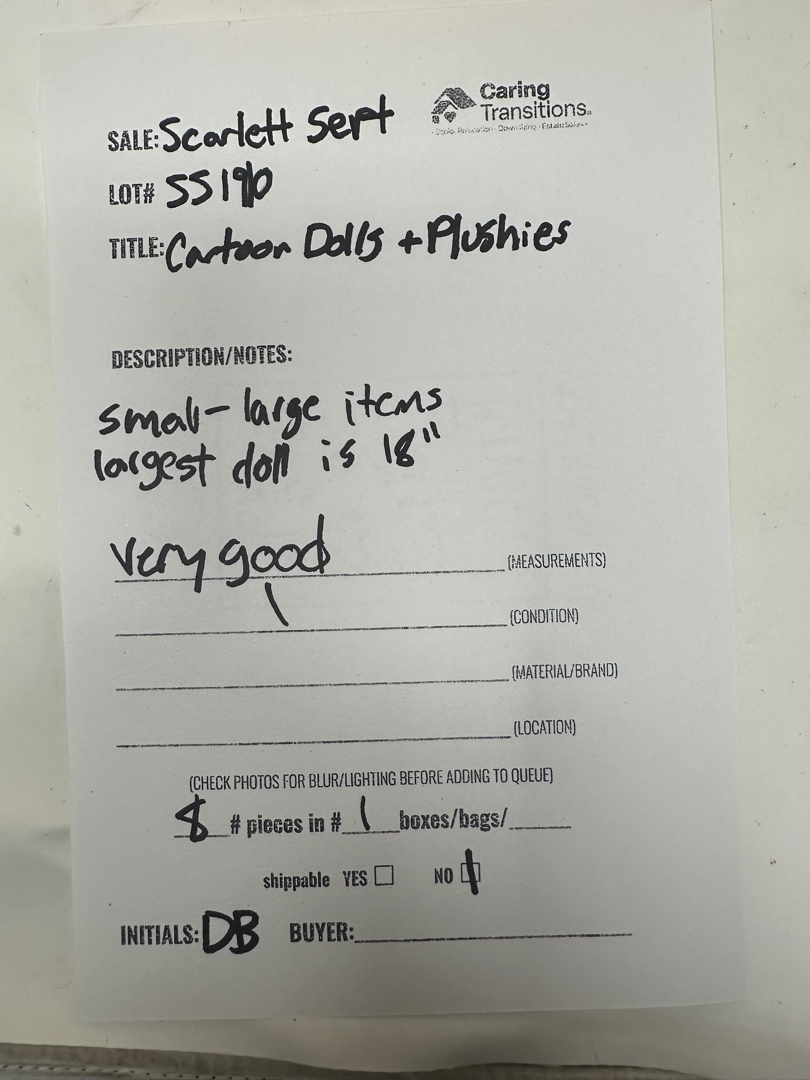 Caring
Transitions
SALE: Scarlett Sept
LOT# SS190
TITLE: Cartoon Dolls + Plushies
DESCRIPTION/NOTES:
small-large items
largest doll is 18"
very good (MEASUREMENTS)
(CONDITION)
(MATERIAL/BRAND)
(LOCATION)
(CHECK PHOTOS FOR BLUR/LIGHTING BEFORE ADDING TO QUEUE)
8 # pieces in # 1 boxes/bags/
shippable YES NO
INITIALS: DB BUYER: